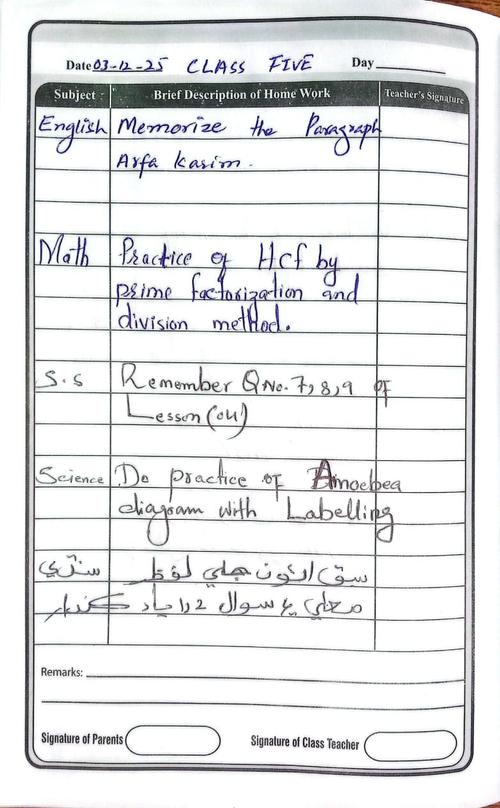 Date 03-12-25 CLASS FIVE Day
Subject Brief Description of Home Work Teacher's Signature
English Memorize the Paragraph
Arfa Kasim.
Math Practice of Hcf by
prime factorization and
division method.
S.S Remember Q No. 7, 8, 9 of
Lesson (04)
Science Do practice of Amoebea
diagram with Labelling
سنڌي سبق اٺون جلي لفظ
معنيٰ ۽ سوال 2 را ياد ڪندا
Remarks:
Signature of Parents Signature of Class Teacher